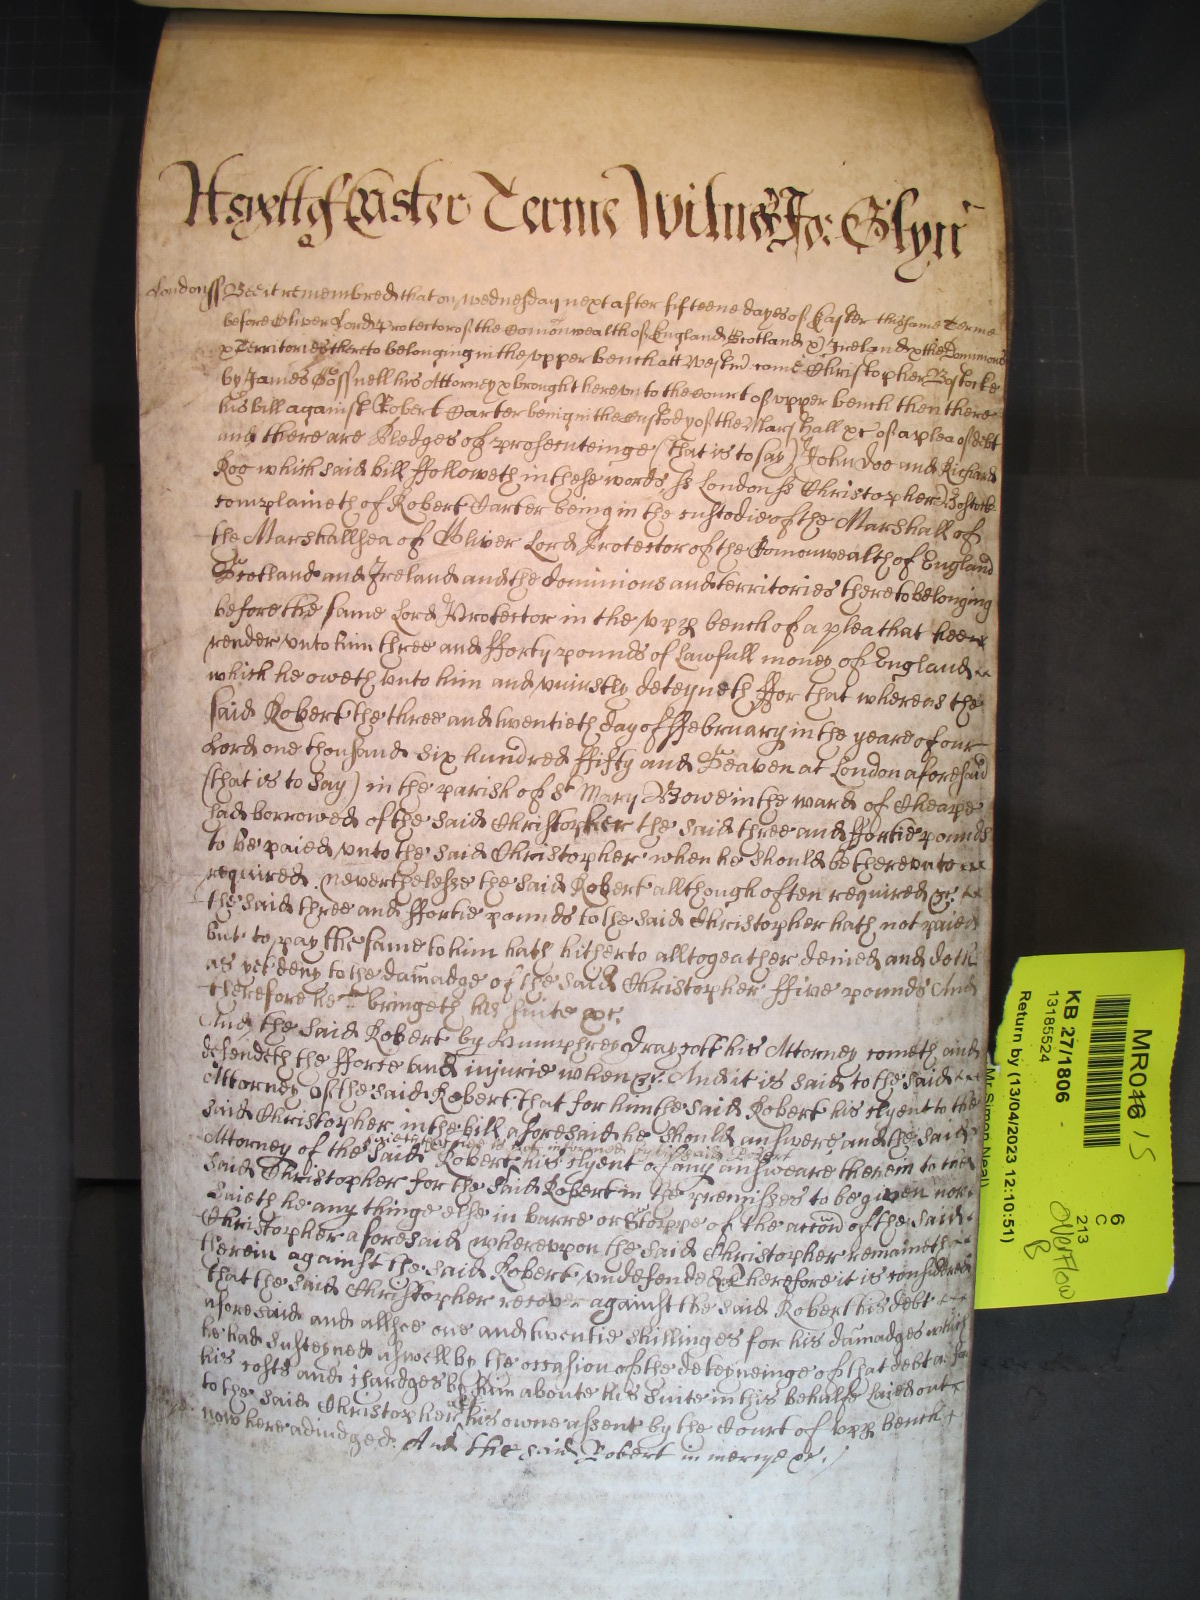 As yett of Easter Terme Witnes Jo: Glyn
London ss Bee it remembred that on wednesday next after fifteene dayes of Easter this same Terme
before Oliver Lord Protector of the Comonwealth of England Scotland & Ireland & the Dominions
& Territories thereto belonging in the vpper bench att Westm come Christopher Bostocke
by James Gossnell his Attorney & brought here vnto the Court of vpper bench then there
his bill against Robert Carter being in the custody of the Marshall &c of a plea of debt
and there are Pledges of prosecuteinge (that is to say) John Doe and Richard
Roo which said bill ffolloweth in these words ss London ss Christopher Bostocke
complaineth of Robert Carter being in the custodie of the Marshall of
the Marshallsea of Oliver Lord Protector of the Comonwealth of England
Scotland and Ireland and the dominions and territories thereto belonging
before the same Lord Protector in the vpp bench of a plea that hee
render vnto him three and fforty pounds of lawfull money of England
which he oweth vnto him and vniustly deteyneth ffor that whereas the
said Robert the three and twentieth day of ffebruary in the yeare of our
Lord one thousand six hundred ffifty and Seaven at London aforesaid
(that is to say) in the parish of St Mary Bowe in the ward of Cheape
had borrowed of the said Christopher the said three and ffortie pounds
to be paied vnto the said Christopher when he should be therevnto
required neverthelesse the said Robert allthough often required &c
the said three and ffortie pounds to the said Christopher hath not paied
but to pay the same to him hath hitherto alltogeather denied and doth
as yet deny to the damadge of the said Christopher ffive pounds And
therefore he bringeth his suite &c.
And the said Robert by Humphrey Draycott his Attorney cometh and
defendeth the fforce and iniurie when &c. And it is said to the said
Attorney of the said Robert that for him the said Robert his clyent to the
said Christopher in the bill aforesaid he should answere and the said
Attorney of the said Robert saieth that he is not informed by the said Robert his clyent of any answeare therein to the
said Christopher for the said Robert in the premisses to be given nor
saieth he any thinge else in barre or Stoppe of the accon of the said
Christopher aforesaid wherevpon the said Christopher remaineth
therein against the said Robert vndefended Therefore it is considered
that the said Christopher recover against the said Robert his debt
aforesaid and allsoe one and twentie shillinges for his damadges which
he had susteyned aswell by the occasion of the deteyneinge of that debt as for
his costs and chardges by him aboute his suite in this behalfe laied out
to the said Christopher his owne assent by the Court of vpp bench
now here adiudged. And the said Robert in mercye &c.
MR016
15
KB 27/1806
13185524
Return by (13/04/2023 12:10:51)
Mr Simon Neal
6
C
213
Overflow
B